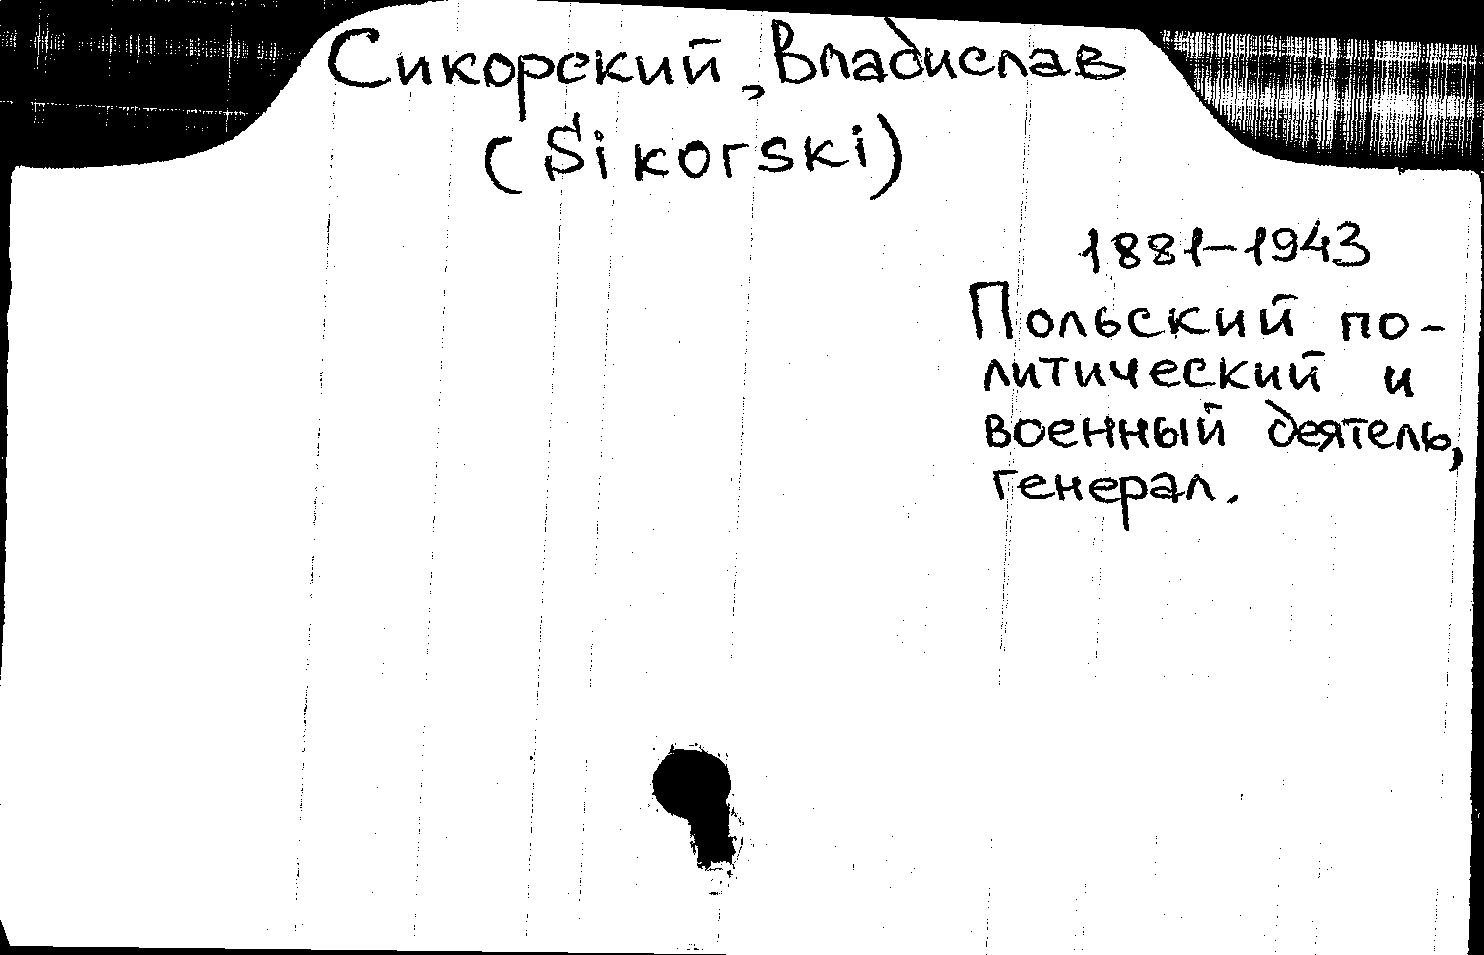 Сикорский, Владислав
(Sikorski)
1881-1943
Польский по-
литический и
военный деятель,
генерал.